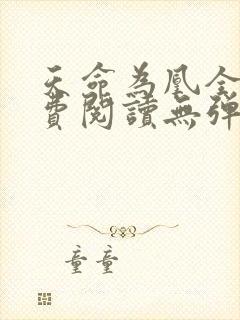 天命為凰全
費閱讀無彈
童童